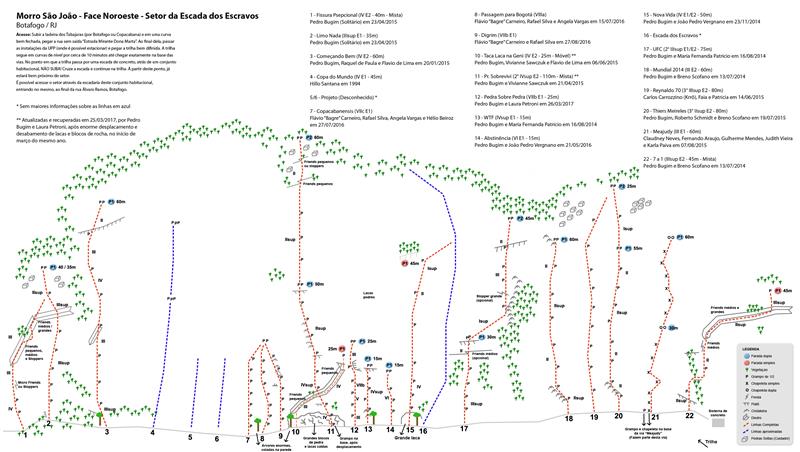 Morro São João - Face Noroeste - Setor da Escada dos Escravos
Botafogo / RJ
Acesso: Subir a ladeira dos Tabajaras (por Botafogo ou Copacabana) e em uma curva
bem fechada, pegar uma rua sem saída "Estrada Mirante Dona Marta". Ao final dela, passar
as instalações da UPP (onde é possível estacionar) e pegar a trilha bem definida. A trilha
segue em curvas de nível por cerca de 10 minutos até chegar exatamente na base das
vias. No ponto em que a trilha passa por uma escada de concreto, atrás de um conjunto
habitacional, NÃO SUBA! Cruze a escada e continue na trilha. A partir deste ponto, já
estará bem próximo do setor.
É possível acessar o setor através da escadaria deste conjunto habitacional,
entrando no mesmo, ao final da rua Álvaro Ramos, Botafogo.
* Sem maiores informações sobre as linhas em azul
** Atualizadas e recuperadas em 25/03/2017, por Pedro
Bugim e Laura Petroni, após enorme desplacamento e
desabamento de lacas e blocos de rocha, no início de
março do mesmo ano.
1 - Fissura Psepcional (IV E2 - 40m - Mista)
Pedro Bugim (Solitário) em 23/04/2015
2 - Limo Nada (IIIsup E1 - 35m)
Pedro Bugim (Solitário) em 23/04/2015
3 - Começando Bem (IV E2 - 60m)
Pedro Bugim, Raquel de Paula e Flavio de Lima em 20/01/2015
4 - Copa do Mundo (IV E1 - 45m)
Hillo Santana em 1994
5/6 - Projeto (Desconhecido) *
7 - Copacabanensis (VIIc E1)
Flávio "Bagre" Carneiro, Rafael Silva, Angela Vargas e Hélio Beiroz
em 27/07/2016
8 - Passagem para Bogotá (VIIIa)
Flávio "Bagre" Carneiro e Rafael Silva e Angela Vargas em 15/07/2016
9 - Digrim (VIIb E1)
Flávio "Bagre" Carneiro e Rafael Silva em 27/08/2016
10 - Taca Laca na Geni (IV E2 - 25m - Móvel) **
Pedro Bugim, Vivianne Sawczuk e Flavio de Lima em 06/06/2015
11 - Pr. Sobrevivi (2° IVsup E2 - 110m - Mista) **
Pedro Bugim e Vivianne Sawczuk em 21/04/2015
12 - Pedra Sobre Pedra (VIIb E1 - 25m)
Pedro Bugim e Laura Petroni, em 26/03/2017
13 - WTF (IVsup E1 - 15m)
Pedro Bugim e Maria Fernanda Patricio em 16/08/2014
14 - Abstinência (VI E1 - 15m)
Pedro Bugim e João Pedro Vergnano em 21/05/2016
15 - Nova Vida (IV E1/E2 - 50m)
Pedro Bugim e João Pedro Vergnano em 23/11/2014
16 - Escada dos Escravos *
17 - UFC (2° IVsup E1/E2 - 75m)
Pedro Bugim e Maria Fernanda Patricio em 16/08/2014
18 - Mundial 2014 (III E2 - 60m)
Pedro Bugim e Breno Scofano em 13/07/2014
19 - Reynaldo 70 (3° IIIsup E2 - 80m)
Carlos Carrozzino (Knö), Faia e Patricia em 14/06/2015
20 - Thien Meireles (3° IIIsup E2 - 80m)
Pedro Bugim, Roberto Schmidt e Breno Scofano em 19/07/2015
21 - Meajudy (III E1 - 60m)
Claudney Neves, Fernando Araujo, Guilherme Mendes, Judith Vieira
e Karla Paiva em 07/08/2015
22 - 7 a 1 (IIIsup E2 - 45m - Mista)
Pedro Bugim e Breno Scofano em 13/07/2014
P2 60m
Friends pequenos
ou Stoppers
Friends pequenos
P1 60m
P1 40 / 35m
P1 50m
Lacas
podres
P1 45m
P2 45m
Stopper grande
(opcional)
P1 30m
Friends médios
(opcional)
P1 60m
P2 25m
P1 55m
P1 60m
30m
P1 45m
Friends médios e
grandes
Friends
médios
Friends
médios /
grandes
Friends
pequenos,
médios e Stoppers
Micro Friends
ou Stoppers
25m
P1 25m
P1 15m
P1 15m
Friends
pequenos
1 2 3 4 5 6 7 8 9 10 11 12 13 14 15 16 17 18 19 20 21 22
Árvores enormes,
coladas na parede
Grandes blocos
de pedra
e lacas soltas
Grampo na
base, após
desplacamento
Grande laca
Grampo e chapeleta na base
da via "Meajudy"
(Fazem parte desta via)
Sistema de
concreto
Trilha
LEGENDA
Parada dupla
Parada simples
Vegetação
Grampo de 1/2
Chapeleta simples
Chapeleta dupla
Fenda
Platô
Cristaleira
Diedro
Laca
Buraco
Árvore
Linhas Completas
Linhas aproximadas
Pedras Soltas (Cuidado!)